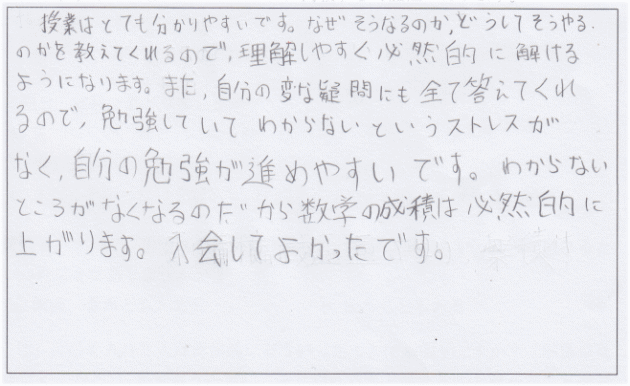 授業はとても分かりやすいです。なぜそうなるのか、どうしてそうやる
のかを教えてくれるので、理解しやすく必然的に解ける
ようになります。また、自分の変な疑問にも全て答えてくれ
るので、勉強していてわからないというストレスが
なく、自分の勉強が進めやすいです。わからない
ところがなくなるのだから数学の成積は必然的に
上がります。入会してよかったです。